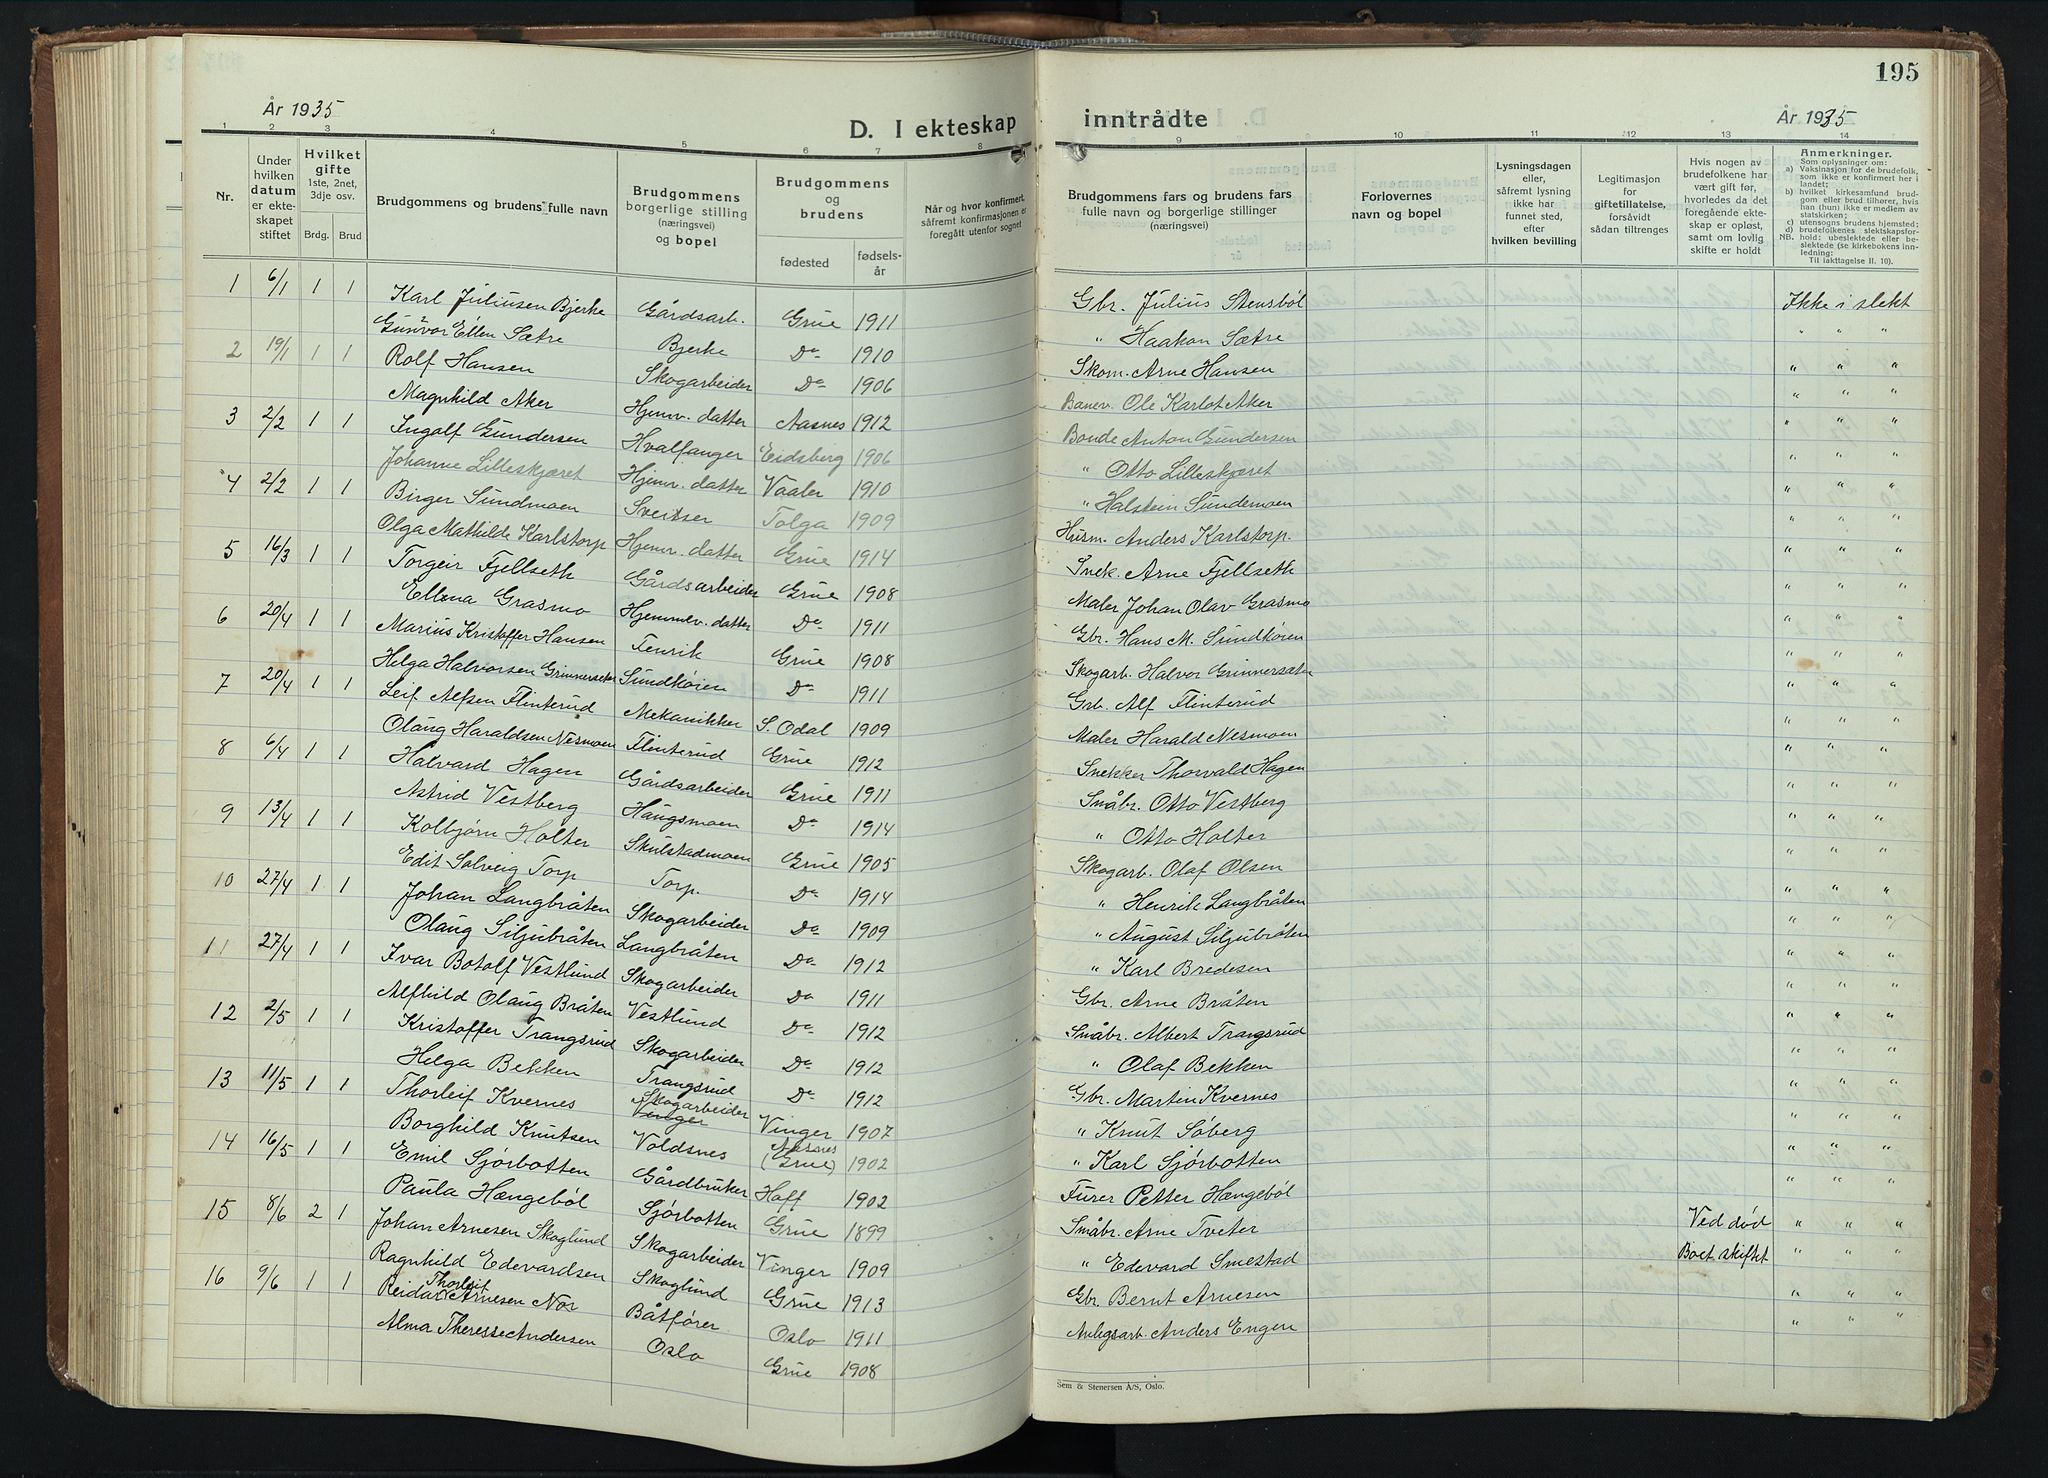 195
År 1935
D. I ekteskap inntrådte
År 1935
1 2 3 4 5 6 7 8 9 10 11 12 13 14
Nr.
Under hvilken datum er ekteskapet stiftet
Hvilket gifte 1ste, 2net, 3dje osv.
Brdg. Brud
Brudgommens og brudens fulle navn
Brudgommens borgerlige stilling (næringsvei) og bopel
Brudgommens og brudens
fødested
fødselsår
Når og hvor konfirmert, såfremt konfirmasjonen er foregått utenfor sognet
Brudgommens fars og brudens fars fulle navn og borgerlige stillinger (næringsvei)
Forlovernes navn og bopel
Lysningsdagen eller, såfremt lysning ikke har funnet sted, efter hvilken bevilling
Legitimasjon for giftetillatelse, forsåvidt sådan tiltrenges
Hvis nogen av brudefolkene har vært gift før, hvorledes da det foregående ekteskap er opløst, samt om lovlig skifte er holdt
Anmerkninger.
Som oplysning om:
a) Vaksinasjon for de brudefolk, som ikke er konfirmert her i landet;
b) hvilket kirkesamfund brudgom eller brud tilhører, hvis han (hun) ikke er medlem av statskirken;
c) utensogns brudens hjemsted;
d) brudefolkenes slektskapsforhold: ubeslektede eller beslektede (se kirkebokens innledning:
NB. Til iakttagelse II. 10).
1 6/1 1 1 Karl Juliusen Bjerke Gårdsarb. Grue 1911 Gbr. Julius Stensböl Ikke i slekt
Gunvor Ellen Sætre Bjerke Do 1910 " Haakon Sætre " " "
2 19/1 1 1 Rolf Hansen Skogarbeider Do 1906 Skom. Arne Hansen " " "
Magnhild Aker Hjemv. datter Aasnes 1912 Banev. Ole Karlot Aker " " "
3 2/2 1 1 Ingolf Gundersen Hvalfanger Eidsberg 1906 Bonde Anton Gundersen " " "
Johanne Lilleskjæret Hjemv. datter Vaaler 1910 " Otto Lilleskjæret " " "
4 2/2 1 1 Birger Sundmoen Sveitser Tolga 1909 " Halstein Sundemoen " " "
Olga Mathilde Karlstorp Hjemv. datter Grue 1914 Husm. Anders Karlstorp. " " "
5 16/3 1 1 Torgeir Fjellseth Gårdsarbeider Grue 1908 Snek. Arne Fjellseth " " "
Ellena Grasmo Hjemmv. datter Do 1911 Maler Johan Olav Grasmo " " "
6 20/4 1 1 Marius Kristoffer Hansen Fenrik Grue 1908 Gbr. Hans M. Sundköien " " "
Helga Halvorsen Grinnerseter Sundköien Do 1911 Skogarb. Halvor Grinnersæter " " "
7 20/4 1 1 Leif Alfsen Flinterud Mekanikker S. Odal 1909 Grb. Alf Flinterud " " "
Olaug Haraldsen Nesmoen Flinterud Grue 1912 Maler Harald Nesmoen " " "
8 6/4 1 1 Halvard Hagen Gårdsarbeider Grue 1911 Snekker Thorvald Hagen " " "
Astrid Vestberg Haugsmoen Do 1914 Småbr. Otto Vestberg " " "
9 13/4 1 1 Kolbjørn Holter Skulstadmoen Grue 1905 " Otto Holter " " "
Edit Solveig Torp Torp. Do 1914 Skogarb. Olaf Olsen " " "
10 27/4 1 1 Johan Langbråten Skogarbeider Do 1909 " Henrik Langbråten " " "
Olaug Siljubråten Langbråten Do 1912 " August Siljubråten " " "
11 27/4 1 1 Ivar Botolf Vestlund Skogarbeider Do 1911 " Karl Bredesen " " "
Alfhild Olaug Bråten Vestlund Do 1912 Gbr. Arne Bråten " " "
12 2/5 1 1 Kristoffer Trangsrud Skogarbeider Do 1912 Småbr. Albert Trangsrud " " "
Helga Bekken Trangsrud Do 1912 " Olaf Bekken " " "
13 11/5 1 1 Thorleif Kvernes Skogarbeider Vinger Vinger 1907 Gbr. Martin Kvernes " " "
Borghild Knutsen Voldsnes Aasnes (Grue) 1902 " Knut Søberg " " "
14 16/5 1 1 Emil Sjørbotten Gårdbruker Hoff 1902 " Karl Sjørbotten " " "
Paula Hængeböl Sjørbotten Grue 1899 Furer Petter Hængeböl " " "
15 8/6 2 1 Johan Arnesen Skoglund Skogarbeider Vinger 1909 Småbr. Arne Tveter Ved død " " "
Ragnhild Edevardsen Skoglund Grue 1913 " Edevard Smestad Boet skiftet " " "
16 9/6 1 1 Reidar Thorleif Arnesen Nor Båtfører Oslo 1911 Gbr. Bernt Arnesen " " "
Alma Theresse Andersen Oslo Grue 1908 Anlegsarb. Anders Engen " " "
Sem & Stenersen A/S, Oslo.